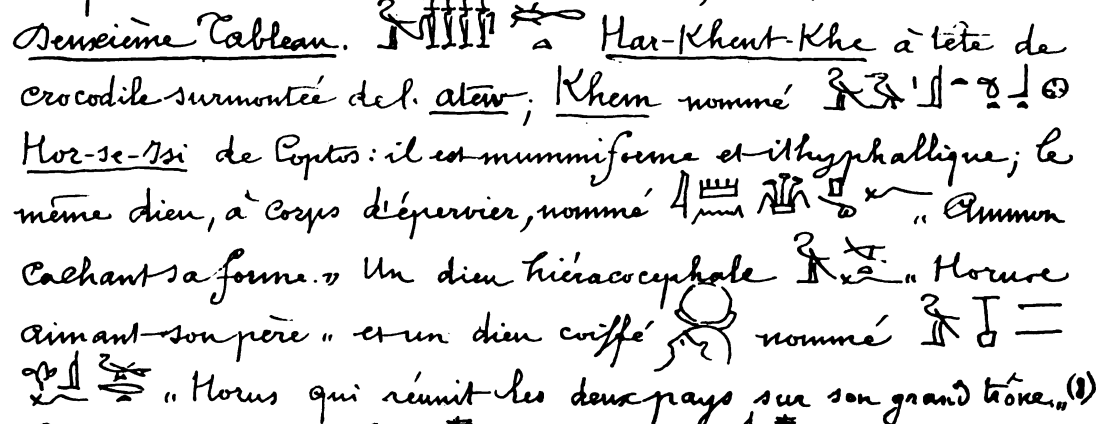 Deuxième Tableau. Har-Khent-Khe à tête de
crocodile surmontée de l'atew; Khem nommé
Hor-se-Isi de Coptos: il est mummiforme et ithyphallique; le
même dieu, à corps d'épervier, nommé „ Ammon
cachant sa forme.„ Un dieu hiéracocephale „ Horus
aimant son père „ et un dieu coiffé nommé
„ Horus qui réunit les deux pays sur son grand trône.„ (8)